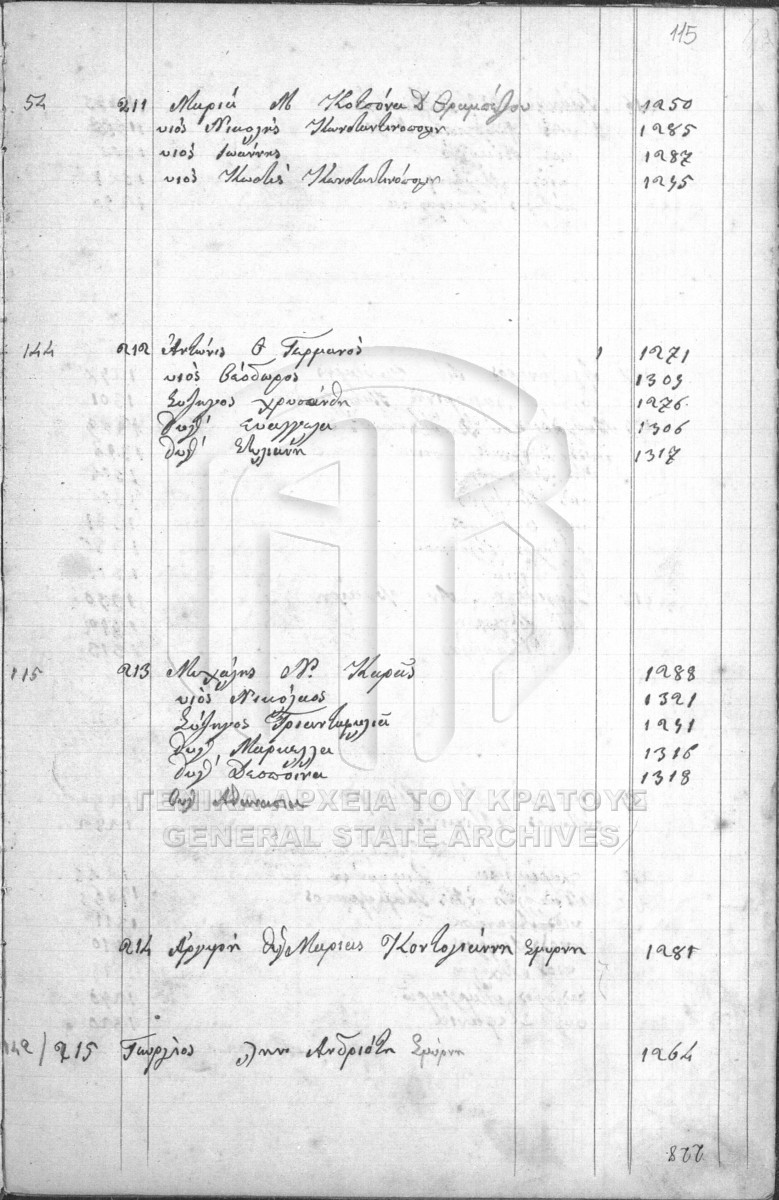 115
54 211 Μαριά Μ Κοτσόνα Δ 1250
υιός Νικολής Κωνσταντινόπολη 1285
υιός Ιωάννης 1287
υιός Κωστής Κωνσταντινόπολη 1295
144 212 Αντώνις Θ Γερμανός 1 1271
υιός Θεόδωρος 1309
Σύζηγος χρυσάνθη 1276
θυγ' Ευαγγελια 1306
θυγ' Στυλιανή 1317
115 213 Μιχάλης Ν. Καράς 1288
υιός Νικόλαος 1321
Σύζηγος Τριανταφυλιά 1291
θυγ' Μαρκελλα 1316
θυγ' Δεσποίνα 1318
θυγ Αθανασια
ΓΕΝΙΚΑ ΑΡΧΕΙΑ ΤΟΥ ΚΡΑΤΟΥΣ
GENERAL STATE ARCHIVES
214 Αργυρή θυγ Μαριας Κοντογιάννη Σμυρνη 1281
142 / 215 Γεωργιος Ανδριότη Σμύρνη 1264
228